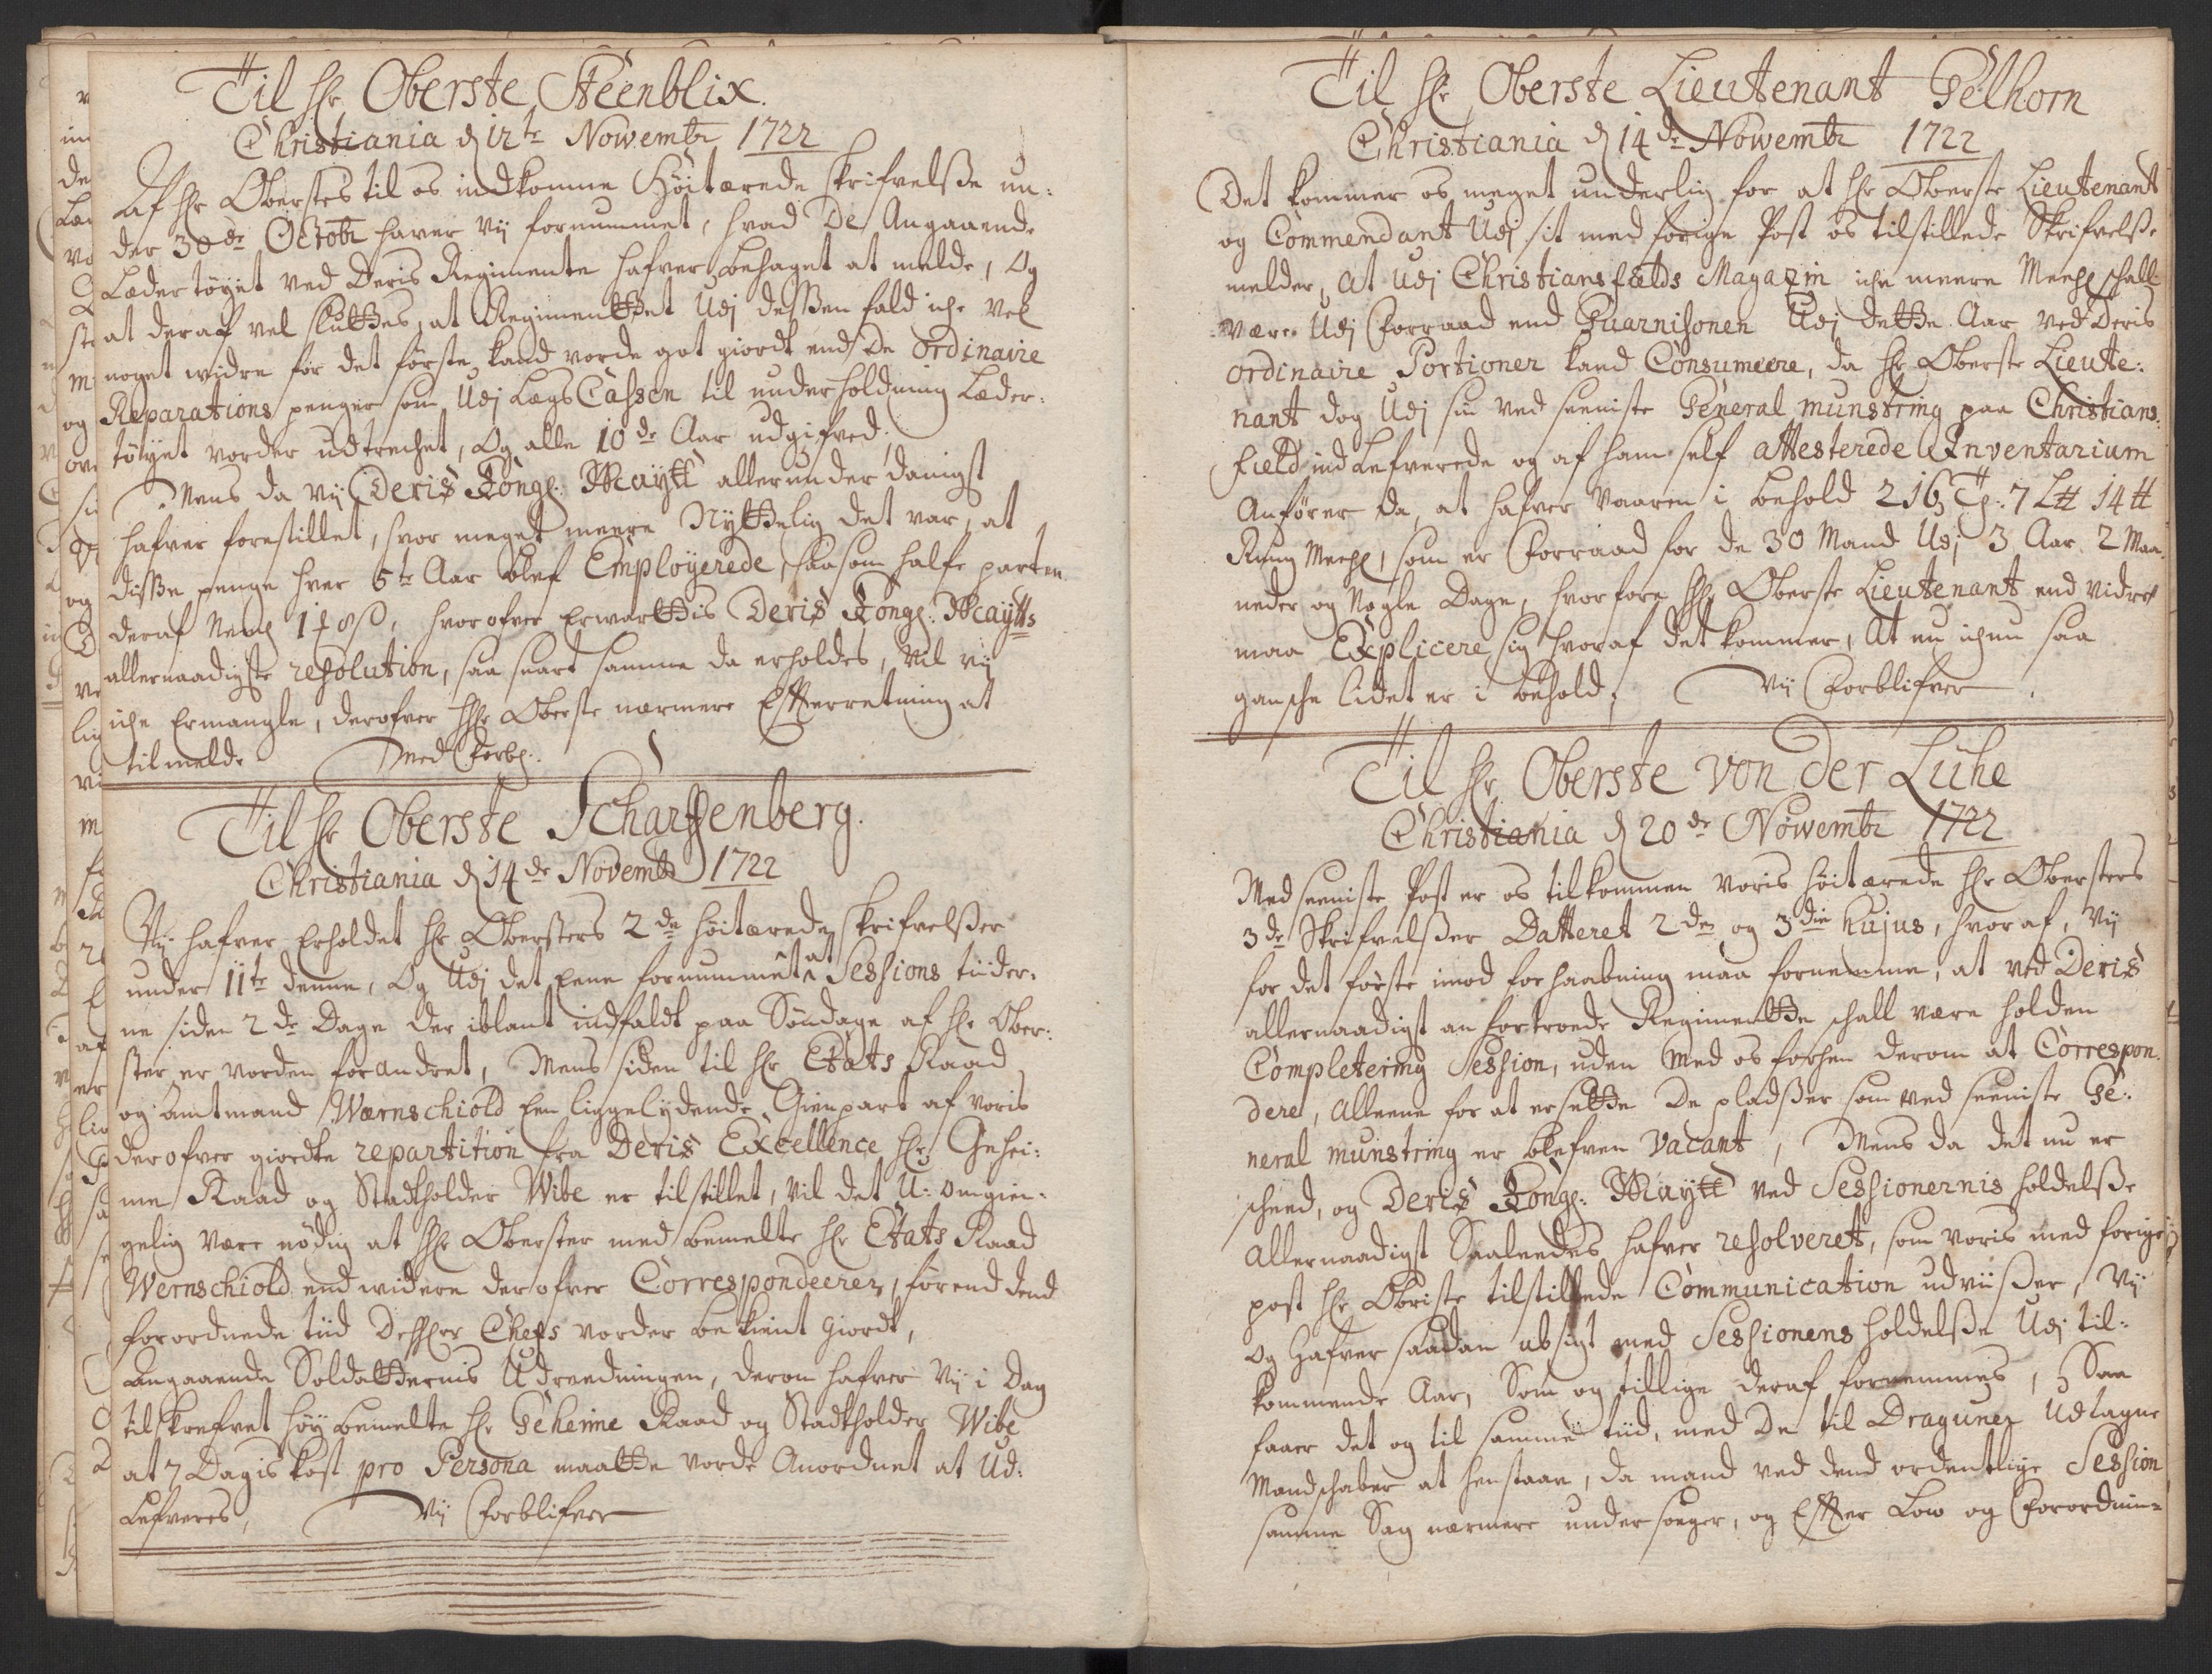 Til hr Oberste Steenblix.
Christiania d 12te Nowembr 1722
Af hr Oberstes til os indkomne Höitærede skrifvelsse un:
der 30de Octobr haver vij fornummet, hvad De Angaaende
Lædertöyet ved Deris Regimente hafver behaget at melde, Og
at deraf vel sluttes, at Regimenttet Udj dessen fald iche vel
noget widre för det förste kand vorde got giordt end De ordinaire
Reparations penger som Udj Lægs Cassen til underholdning Læder:
töyet vorder udtrechet, Og alle 10de Aar udgifved;
Mens da vij Deris Kongl: Maytt allerunderdanigst
hafver forestillet, hvor meget meere Nyttelig det var, at
disse penge hver 5te Aar blef Employerede, saasom halfe parten
deraf Neml 1 8 ß, hvorofver Erwarttis Deris Kongl: Maytts
allernaadigste resolution, saa snart samme da erholdes, vil vij
iche Ermangle, derofver Hr Oberste nærmere Effterretning at
tilmelde Med Forbl:
Til hr Oberste Scharffenberg.
Christiania d 14de Novembr 1722
Vij hafver Erholdet hr Oberstens 2de höitærede skrifvelsser
under 11te denne, Og Udj det Eene fornummet at Sessions tiider:
ne siden 2de Dage der iblant indfaldt paa Söndage af hr Ober:
ster er vorden forandret, Mens siden til hr Etats Raad
og Amtmand Wærnschiold Een liggelydende Gienpart af voris
derofver giordte repartition fra Deris Excellence hr Gehei:
me Raad og Stadtholder Wibe er tilstillet, vil det U: omgien:
gelig være nödig at Hr Oberster med bemelte hr Etats Raad
Wernschiold end widere derofver Correspondeerer, förend dend
forordnede tiid Chefs vorder bekient giordt,
Angaaende Soldatternis Udreedningen, derom hafver vij i Dag
tilskrefvet höybemelte hr Geheime Raad og Stadtholder Wibe
at 7 Dagis kost pro Persona maatte vorde Anordnet at Ud:
Lefveres, Vij Forblifver
Til hr Oberste Lieutenant Gelhorn
Christiania d 14de Nowembr 1722
Det kommer os meget underlig for at hr Oberste Lieutenant
og Commendant Udj sit med forige Post os tilstillede Skrifvelsse
melder, at udj Christiansfælds Magazin iche meere Meehl schall
være Udj Forraad end Guarnisonen Udj dette Aar ved Deris
ordinaire Portioner kand Consumeere, da hr Oberste Lieute:
nant dog Udj sin ved seeniste General munstring paa Christians:
field indLefverede og af ham self attesterede Inventarium
Anförer da, at hafver vaaren i behold 216 Tr: 7 L℔ 14 ℔
Rung Meehl, som er Forraad for de 30 Mand Udj 3 Aar 2 Maa:
neder og Nogle Dage, hvorfore Hr Oberste Lieutenant end vidre
maa Explicere sig hvoraf det kommer, At nu ichun saa
gansche lidet er i behold; Vij Forblifver
Til hr Oberste von der Lühe
Christiania d 20de Nowembr 1722
Med seeniste Post er os tilkommen voris höitærede hr Oberstes
3de Skrifvelsser Datteret 2den og 3die hujus, hvoraf, Vij
for det förste imod forhaabning maa fornemme, at ved Deris
allernaadigst anfortroede Regimentte schall være holden
Completering Session, uden Med os forhen derom at Correspon:
dere, Alleene for at ersette De pladsser som ved seeniste Ge:
neral munstring er blefven vacant, Mens da det nu er
scheed, og Deris Kongl: Maytt ved Sessionernis holdelsse
Allernaadigst Saaleedes hafver resolveret, som voris med forige
post hr Obriste tilstillede Communication udviisser, Vij
og hafver saadan absigt med Sessionens holdelsse Udj til:
kommende Aar, Som og tillige deraf fornemmes, Saa
faaer det og til samme tiid, med De til Draguner Udtagne
Mandschaber at henstaae, da mand ved dend ordentlige Session
samme Sag nærmere undersöger, og Effter Low og Forordnin: